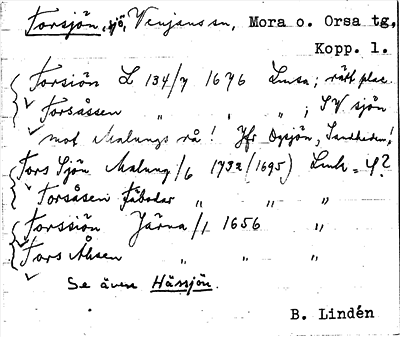 Forsjön, sjö, Venjans sn, Mora o. Orsa tg,
Kopp. l.
Forsiön L 134/7 1676 Lmsa; rätt plac.
Forsåssen " " " "; SV sjön
mot Malungs rå! Jfr Opsjön, Sandheden!
Fors Siön Malung/6 1732 (1695) Lmk = 4?
Forsåsen Fäbodar " " "
Forssiön Järna/1 1656 "
Fors Åhsen " " "
Se även Hässjön.
B. Lindén